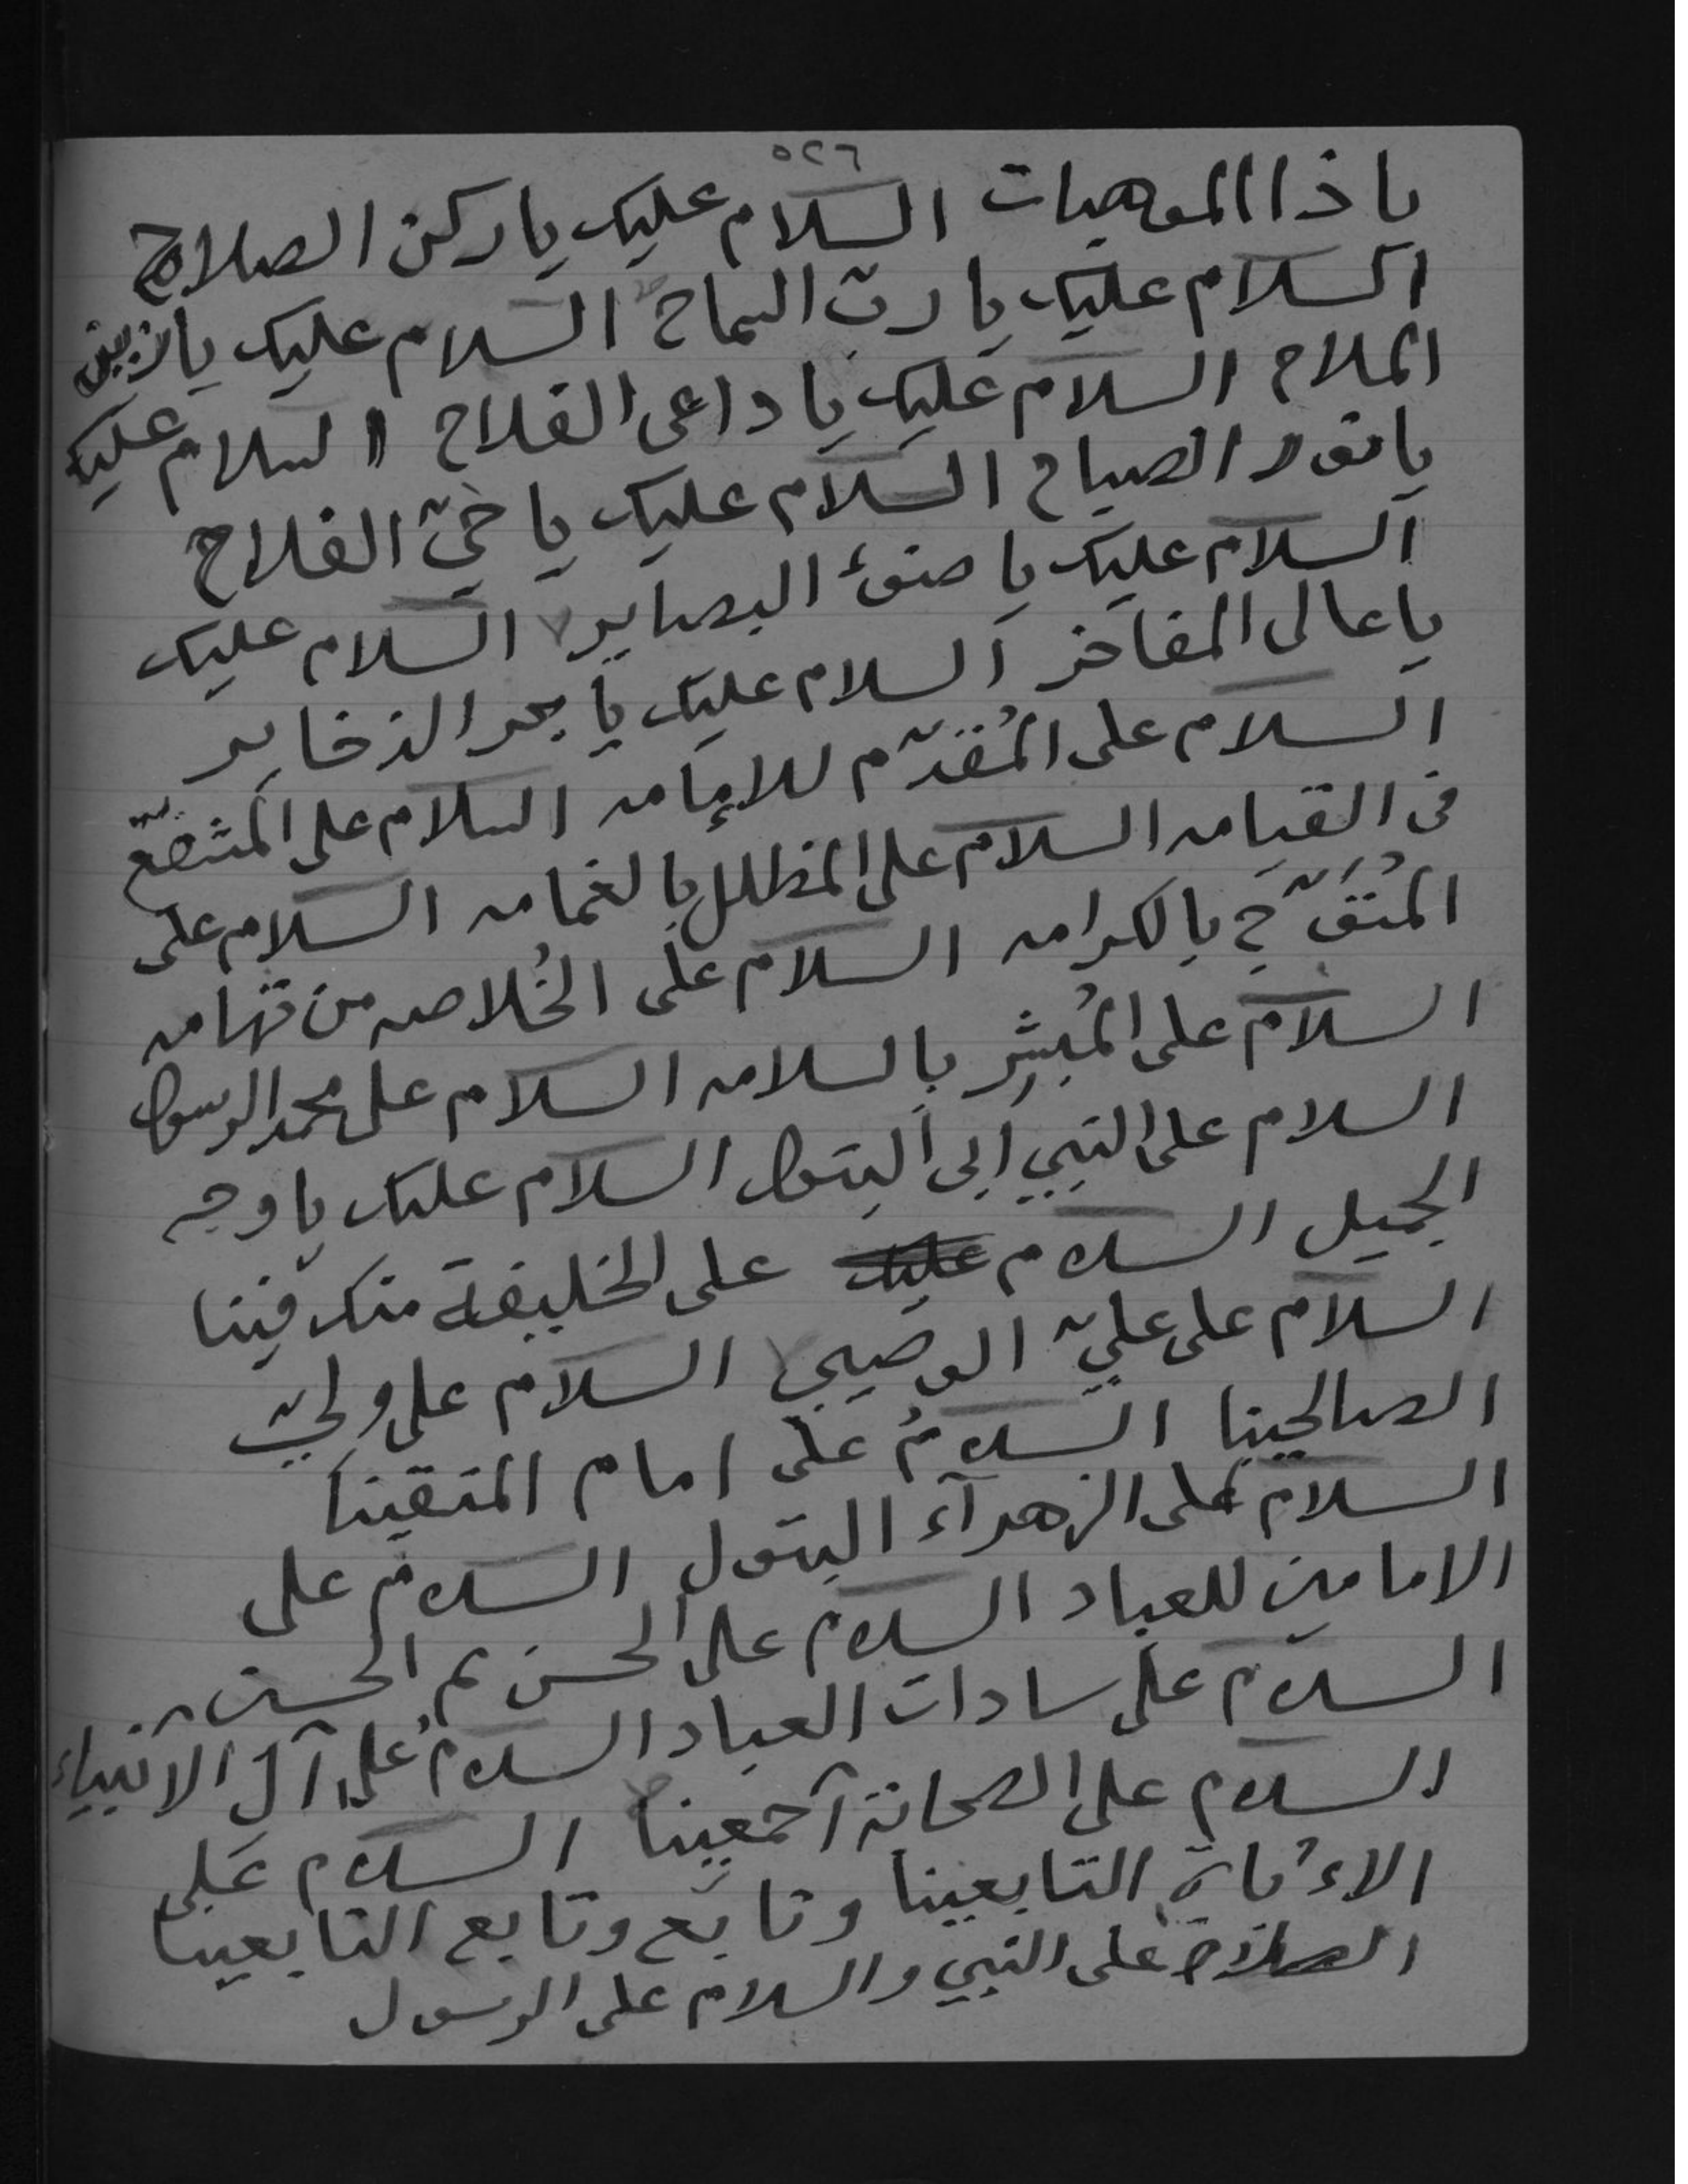 ٥٢٦
يا ذا الموهبات السلام عليك يا ركن الصلاح
السلام عليك يا ربّ السماح السلام عليك يا زين
الملاح السلام عليك يا داعى الفلاح السلام عليك
يا نور الصباح السلام عليك يا خيّ الفلاح
السلام عليك يا ضوء البصاير السلام عليك
يا عالى المفاخر السلام عليك يا بحر الذخاير
السلام على المُقدّم للإمامه السلام على المشفّع
فى القيامه السلام على المظلل بالغمامه السلام على
المُتَوّج بالكرامه السلام على الخُلاصه من تهامه
السلام على المُبشِّر بالسلامه السلام على محمد الرسول
السلام على النبي أبى البتول السلام عليك يا وجه
الجميل السلام عليك على الخليفة منك فينا
السلام على عليّ الوصيي السلام على وليّ
الصالحينا السلامُ على امام المتقينا
السلام على الزهرآء البتول السلام على
الامامين للعباد السلام على الحسن ثم الحسين
السلام على سادات العباد السلامُ على آل الانبياء
السلام على الصحابة آجمعينا السلام على
التابعينا وتابع وتابع التابعينا
الصلاة على النبي والسلام على الرسول